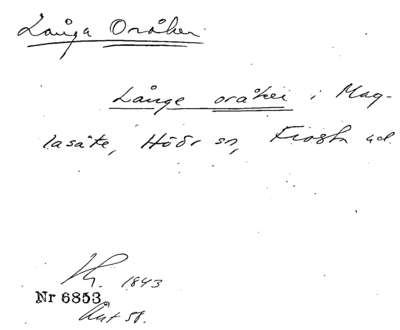 Långa Oråker
Långe oråker i Mag-
lasäte, Höörs sn, Frosta hd.
1843
Nr 6853
Akt 58.